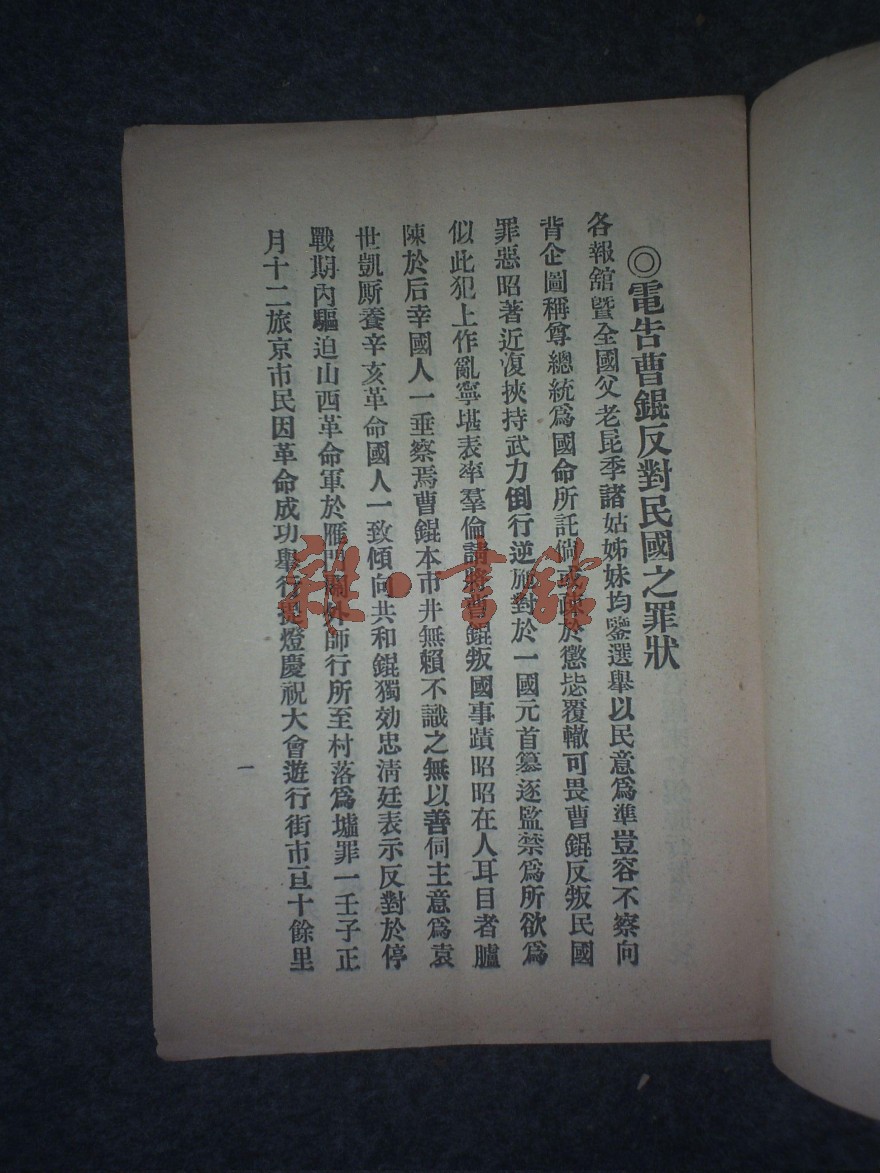 ◎電告曹錕反對民國之罪狀
各報舘曁全國父老昆季諸姑姊妹均鑒選舉以民意爲準豈容不察向
背企圖稱尊總統爲國命所託倘或疎於懲毖覆轍可畏曹錕反叛民國
罪惡昭著近復挾持武力倒行逆施對於一國元首篡逐監禁爲所欲爲
似此犯上作亂寧堪表率羣倫請將曹錕叛國事蹟昭昭在人耳目者臚
陳於后幸國人一垂察焉曹錕本市井無賴不識之無以善伺主意爲袁
世凱厮養辛亥革命國人一致傾向共和錕獨効忠淸廷表示反對於停
戰期內驅迫山西革命軍於雁門關外師行所至村落爲墟罪一壬子正
月十二旅京市民因革命成功舉行提燈慶祝大會遊行街市亘十餘里
一
雜·書舘